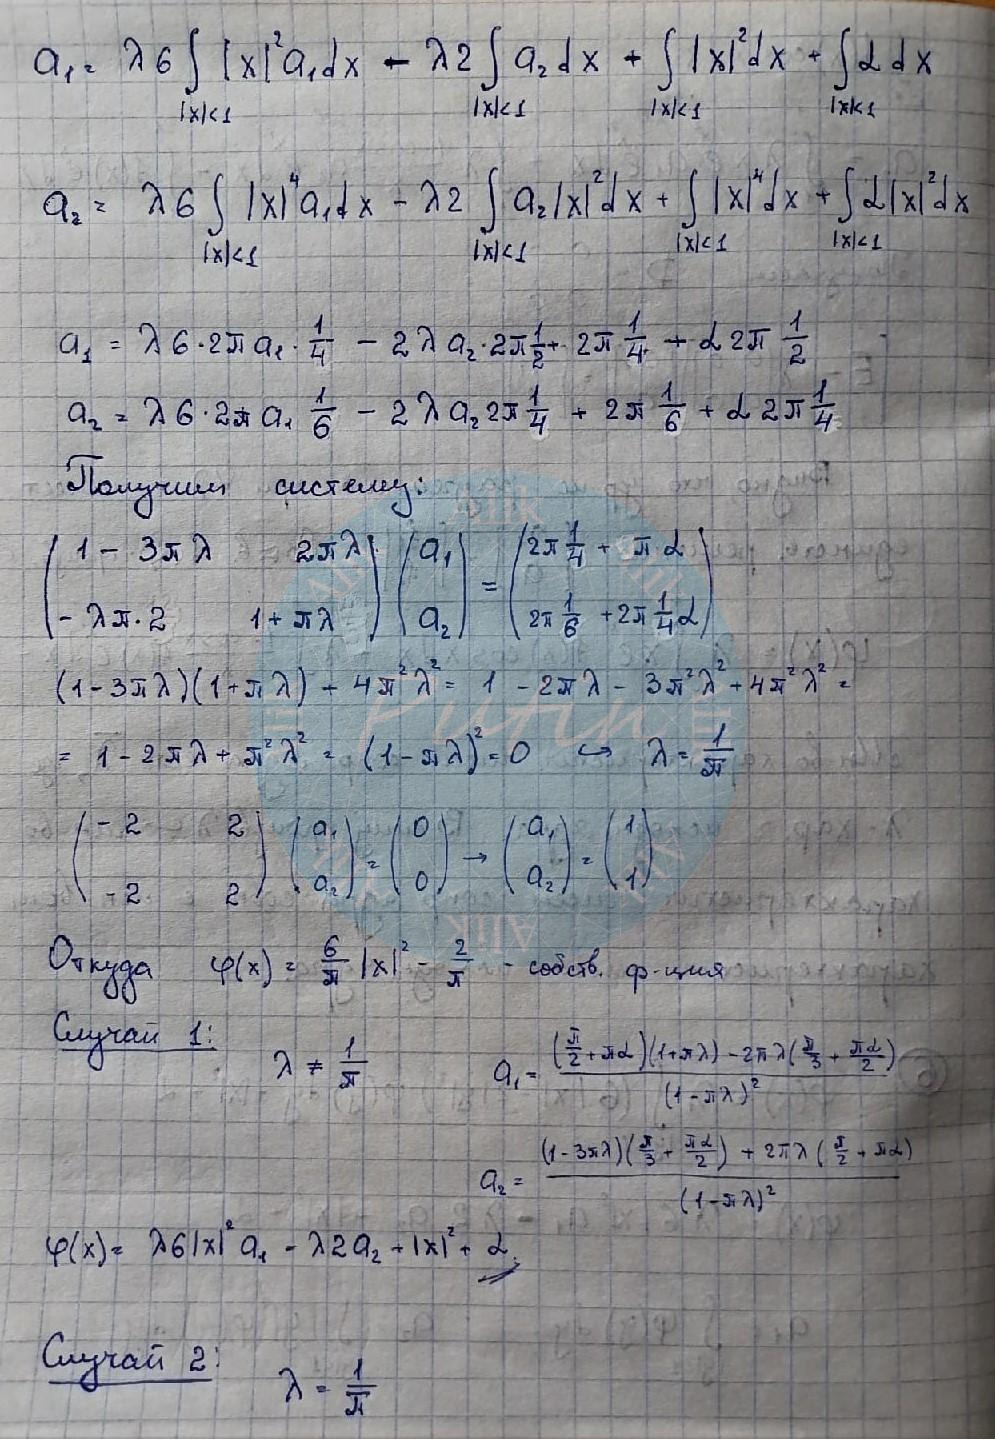 a₁ = λ6 ∫_{|x|<1} |x|² a₁ dx − λ2 ∫_{|x|<1} a₂ dx + ∫_{|x|<1} |x|² dx + ∫_{|x|<1} α dx
a₂ = λ6 ∫_{|x|<1} |x|⁴ a₁ dx − λ2 ∫_{|x|<1} a₂ |x|² dx + ∫_{|x|<1} |x|⁴ dx + ∫_{|x|<1} α |x|² dx
a₁ = λ6·2π a₁ · 1/4 − 2λ a₂·2π 1/2 + 2π 1/4 + α 2π 1/2
a₂ = λ6·2π a₁ 1/6 − 2λ a₂ 2π 1/4 + 2π 1/6 + α 2π 1/4
Получим систему:
(1 − 3πλ 2πλ) (a₁) = (2π 1/4 + πα)
(−λπ·2 1 + πλ) (a₂) (2π 1/6 + 2π 1/4 α)
(1−3πλ)(1+πλ) + 4π²λ² = 1 − 2πλ − 3π²λ² + 4π²λ² =
= 1 − 2πλ + π²λ² = (1−πλ)² = 0 ↪ λ = 1/π
(−2 2) (a₁) = (0) → (a₁) = (1)
(−2 2) (a₂) (0) (a₂) (1)
Откуда φ(x) = 6/π |x|² − 2/π - собств. ф-ция
Случай 1:
λ ≠ 1/π a₁ = ((π/2 + πα)(1+πλ) − 2πλ(π/3 + πα/2)) / (1−πλ)²
a₂ = ((1−3πλ)(π/3 + πα/2) + 2πλ(π/2 + πα)) / (1−πλ)²
φ(x) = λ6|x|² a₁ − λ2a₂ + |x|² + α
Случай 2:
λ = 1/π